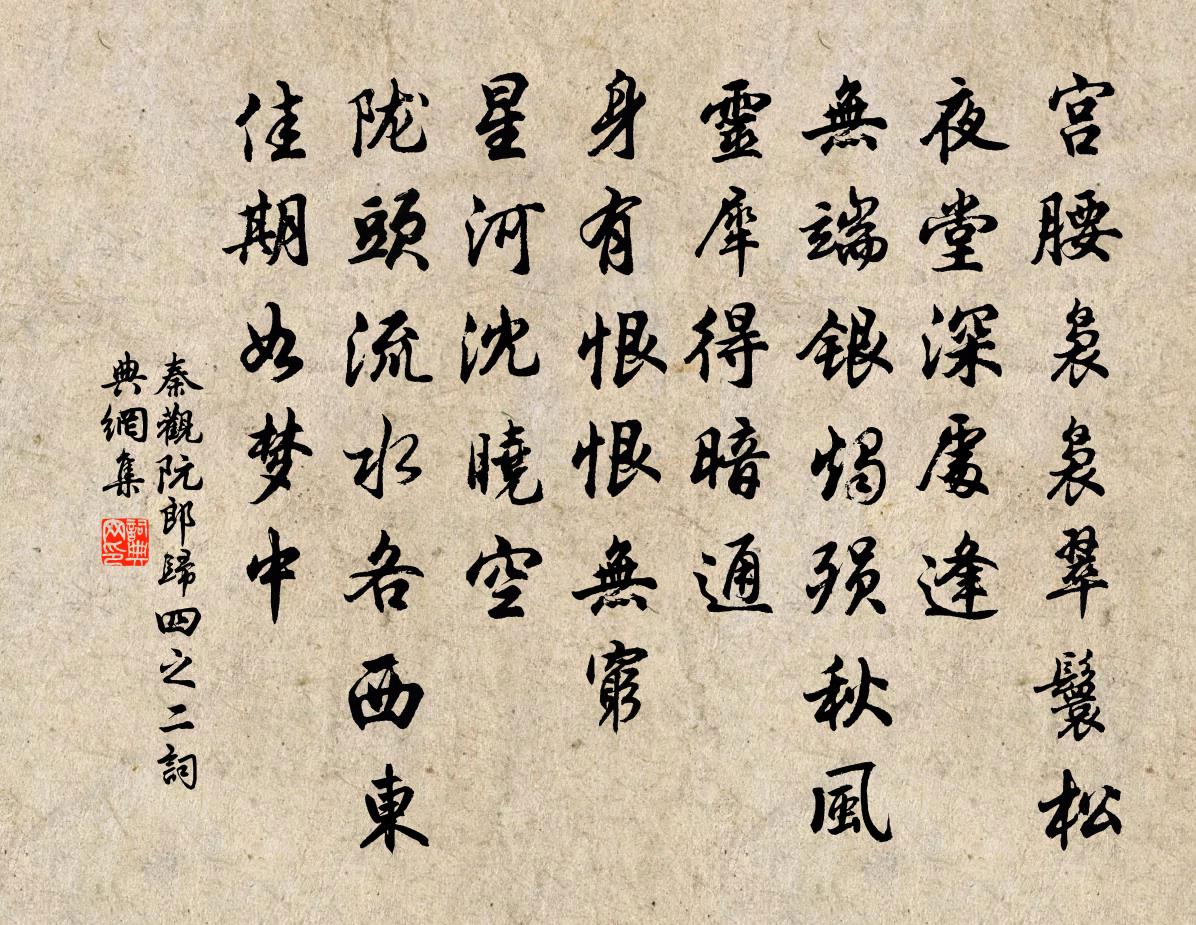 宫腰袅袅翠鬟松
夜堂深處逢
無端銀燭殞秋風
靈犀得暗通
身有恨恨無窮
星河沈曉空
陇頭流水各西東
佳期如梦中
秦觀阮郎歸四之二詞
典網集
詞典
网印